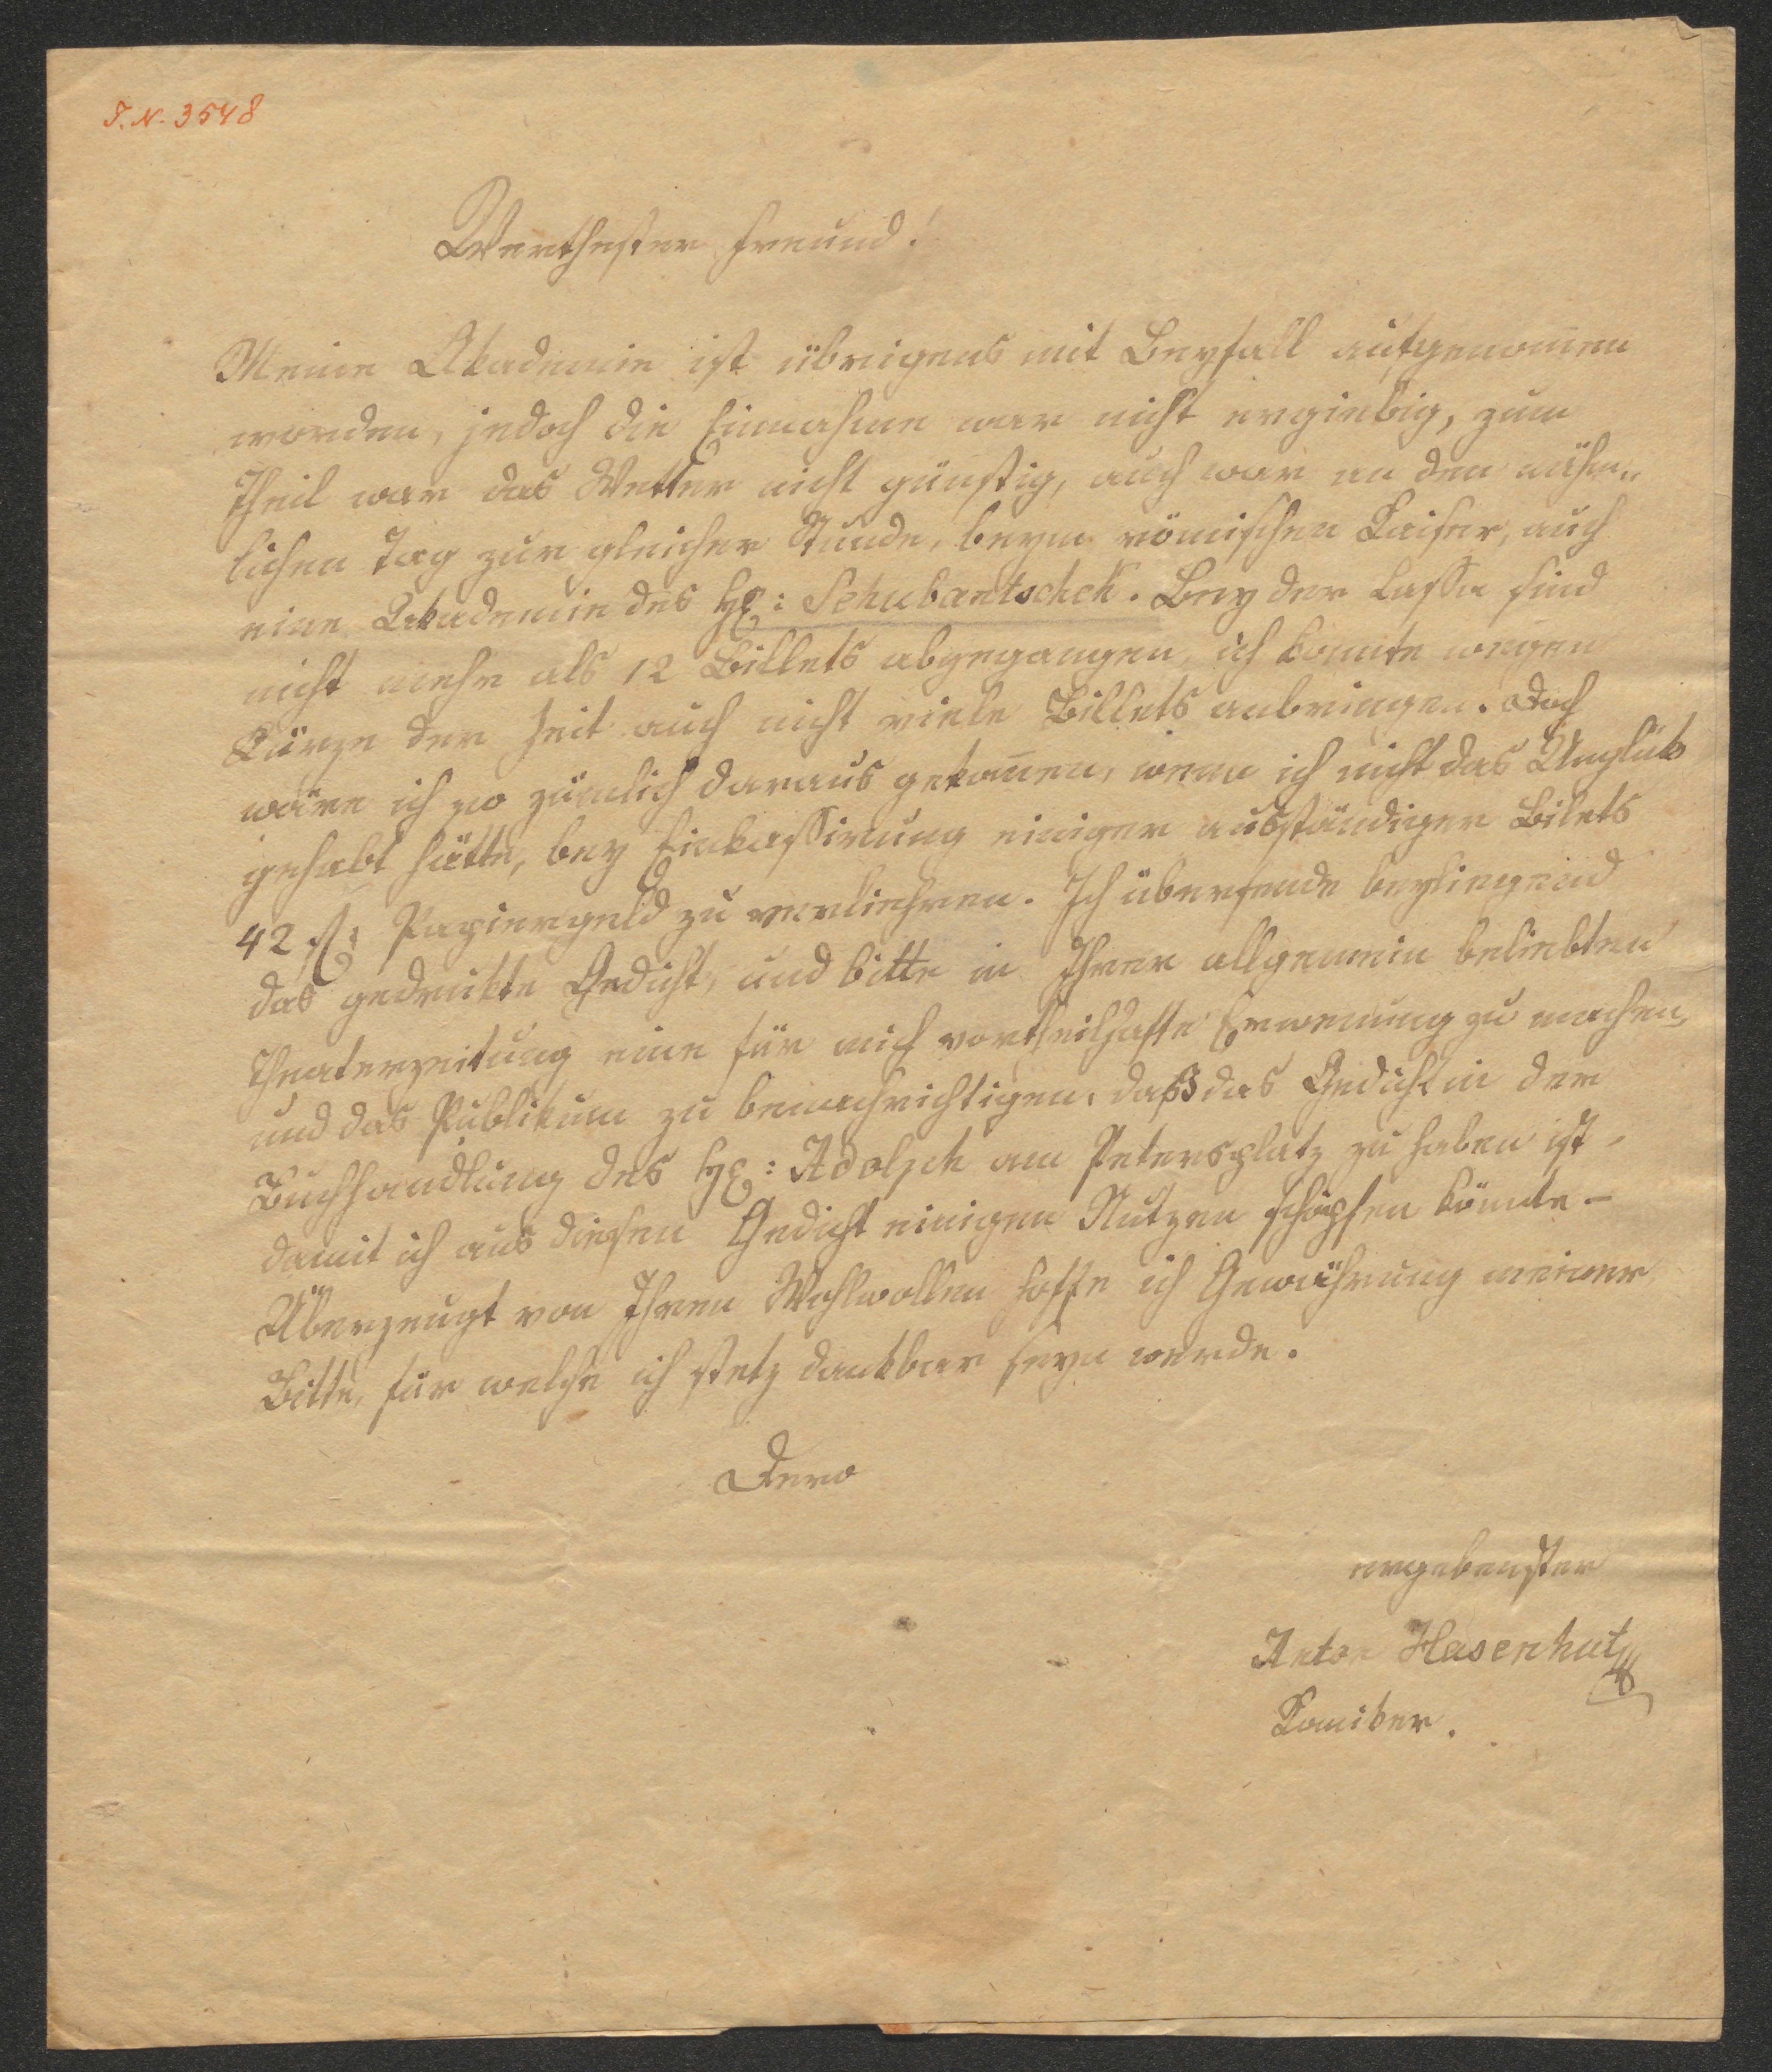 I. N. 3548
Werthester Freund!
Meine Akademie ist übrigens mit Beyfall aufgenom̄en
worden, jedoch die Einnahme war nicht ergiebig, zum
Theil war das Wetter nicht günstig, auch war an den nähm„
lichen Tag zur gleicher Stunde, beym römischen Kaiser, auch
eine Akademie des H: Schubantschek. Bey der Cassa sind
nicht mehr als 12 Billets abgegangen, ich konnte wegen
Kürze der Zeit auch nicht viele Billets anbringen. Doch
wäre ich so zimlich daraus gekom̄en, wenn ich nicht das Unglük
gehabt hätte, bey Einkassirung einiger ausständiger Bilets
42 f: Papiergeld zu verliehren. Ich übersende beyliegend
das gedrukte Gedicht, und bitte in Ihrer allgemein beliebten
Theaterzeitung eine für mich vortheilhafte Erwenung zu machen,
und das Publikum zu benachrichtigen, daß das Gedicht in der
Buchhandlung des H: Adolph am Petersplatz zu haben ist,
damit ich aus diesen Gedicht einigen Nutzen schöpfen könnte –
Überzeugt von Ihren Wohlwollen hoffe ich Gewährung meiner
Bitte, für welche ich stetz dankbar seyn werde.
Dero
ergebenster
Anton Hasenhut
Komiker.